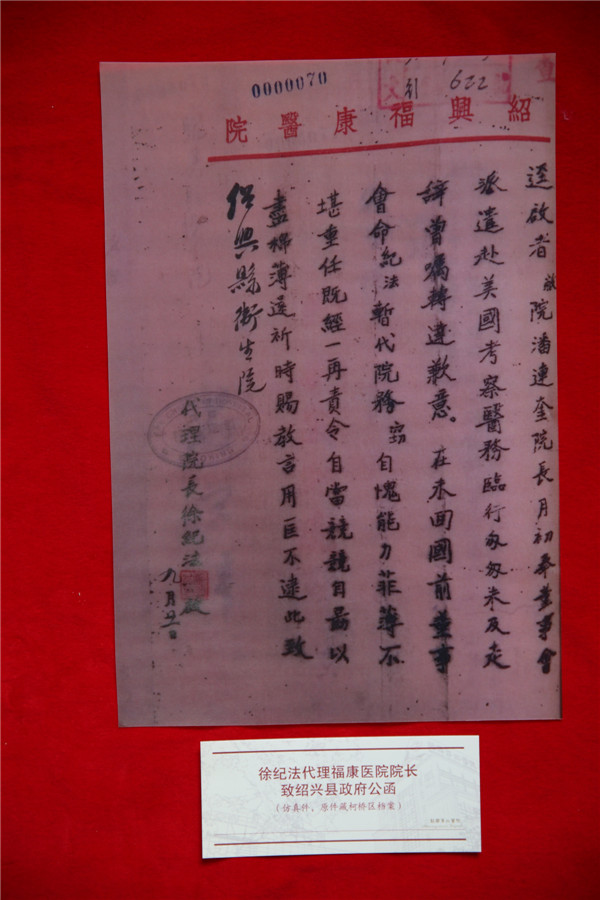 0000070
622
紹興福康醫院
逕啟者敝院潘連奎院長月初奉董事會
派遣赴美國考察醫務臨行匆匆未及走
辭曾囑轉達歉意。在未回國前董事
會命紀法暫代院務竊自愧能力菲薄不
堪重任既經一再責令自當兢兢自勗以
盡棉薄還祈時賜教言用匡不逮此致
紹興縣衛生院
代理院長徐紀法 啟
九月
徐纪法代理福康医院院长
致绍兴县政府公函
（仿真件，原件藏柯桥区档案）